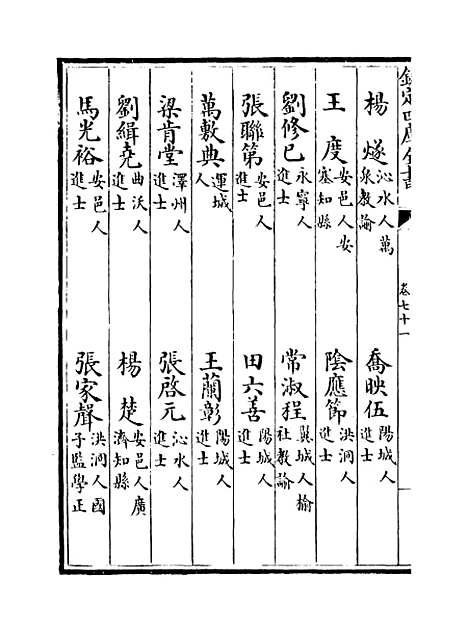 欽定四庫全書
卷七十一
楊燧 沁水人萬泉教諭
喬映伍 陽城人進士
王度 安邑人安塞知縣
陰應節 洪洞人進士
劉修已 永寧人進士
常淑程 翼城人榆社教諭
張聯第 安邑人進士
田六善 陽城人進士
萬敷典 運城人
王蘭彰 陽城人進士
梁肯堂 澤州人進士
張啓元 沁水人進士
劉緝堯 曲沃人進士
楊楚 安邑人廣濟知縣
馬光裕 安邑人進士
張家聲 洪洞人國子監學正